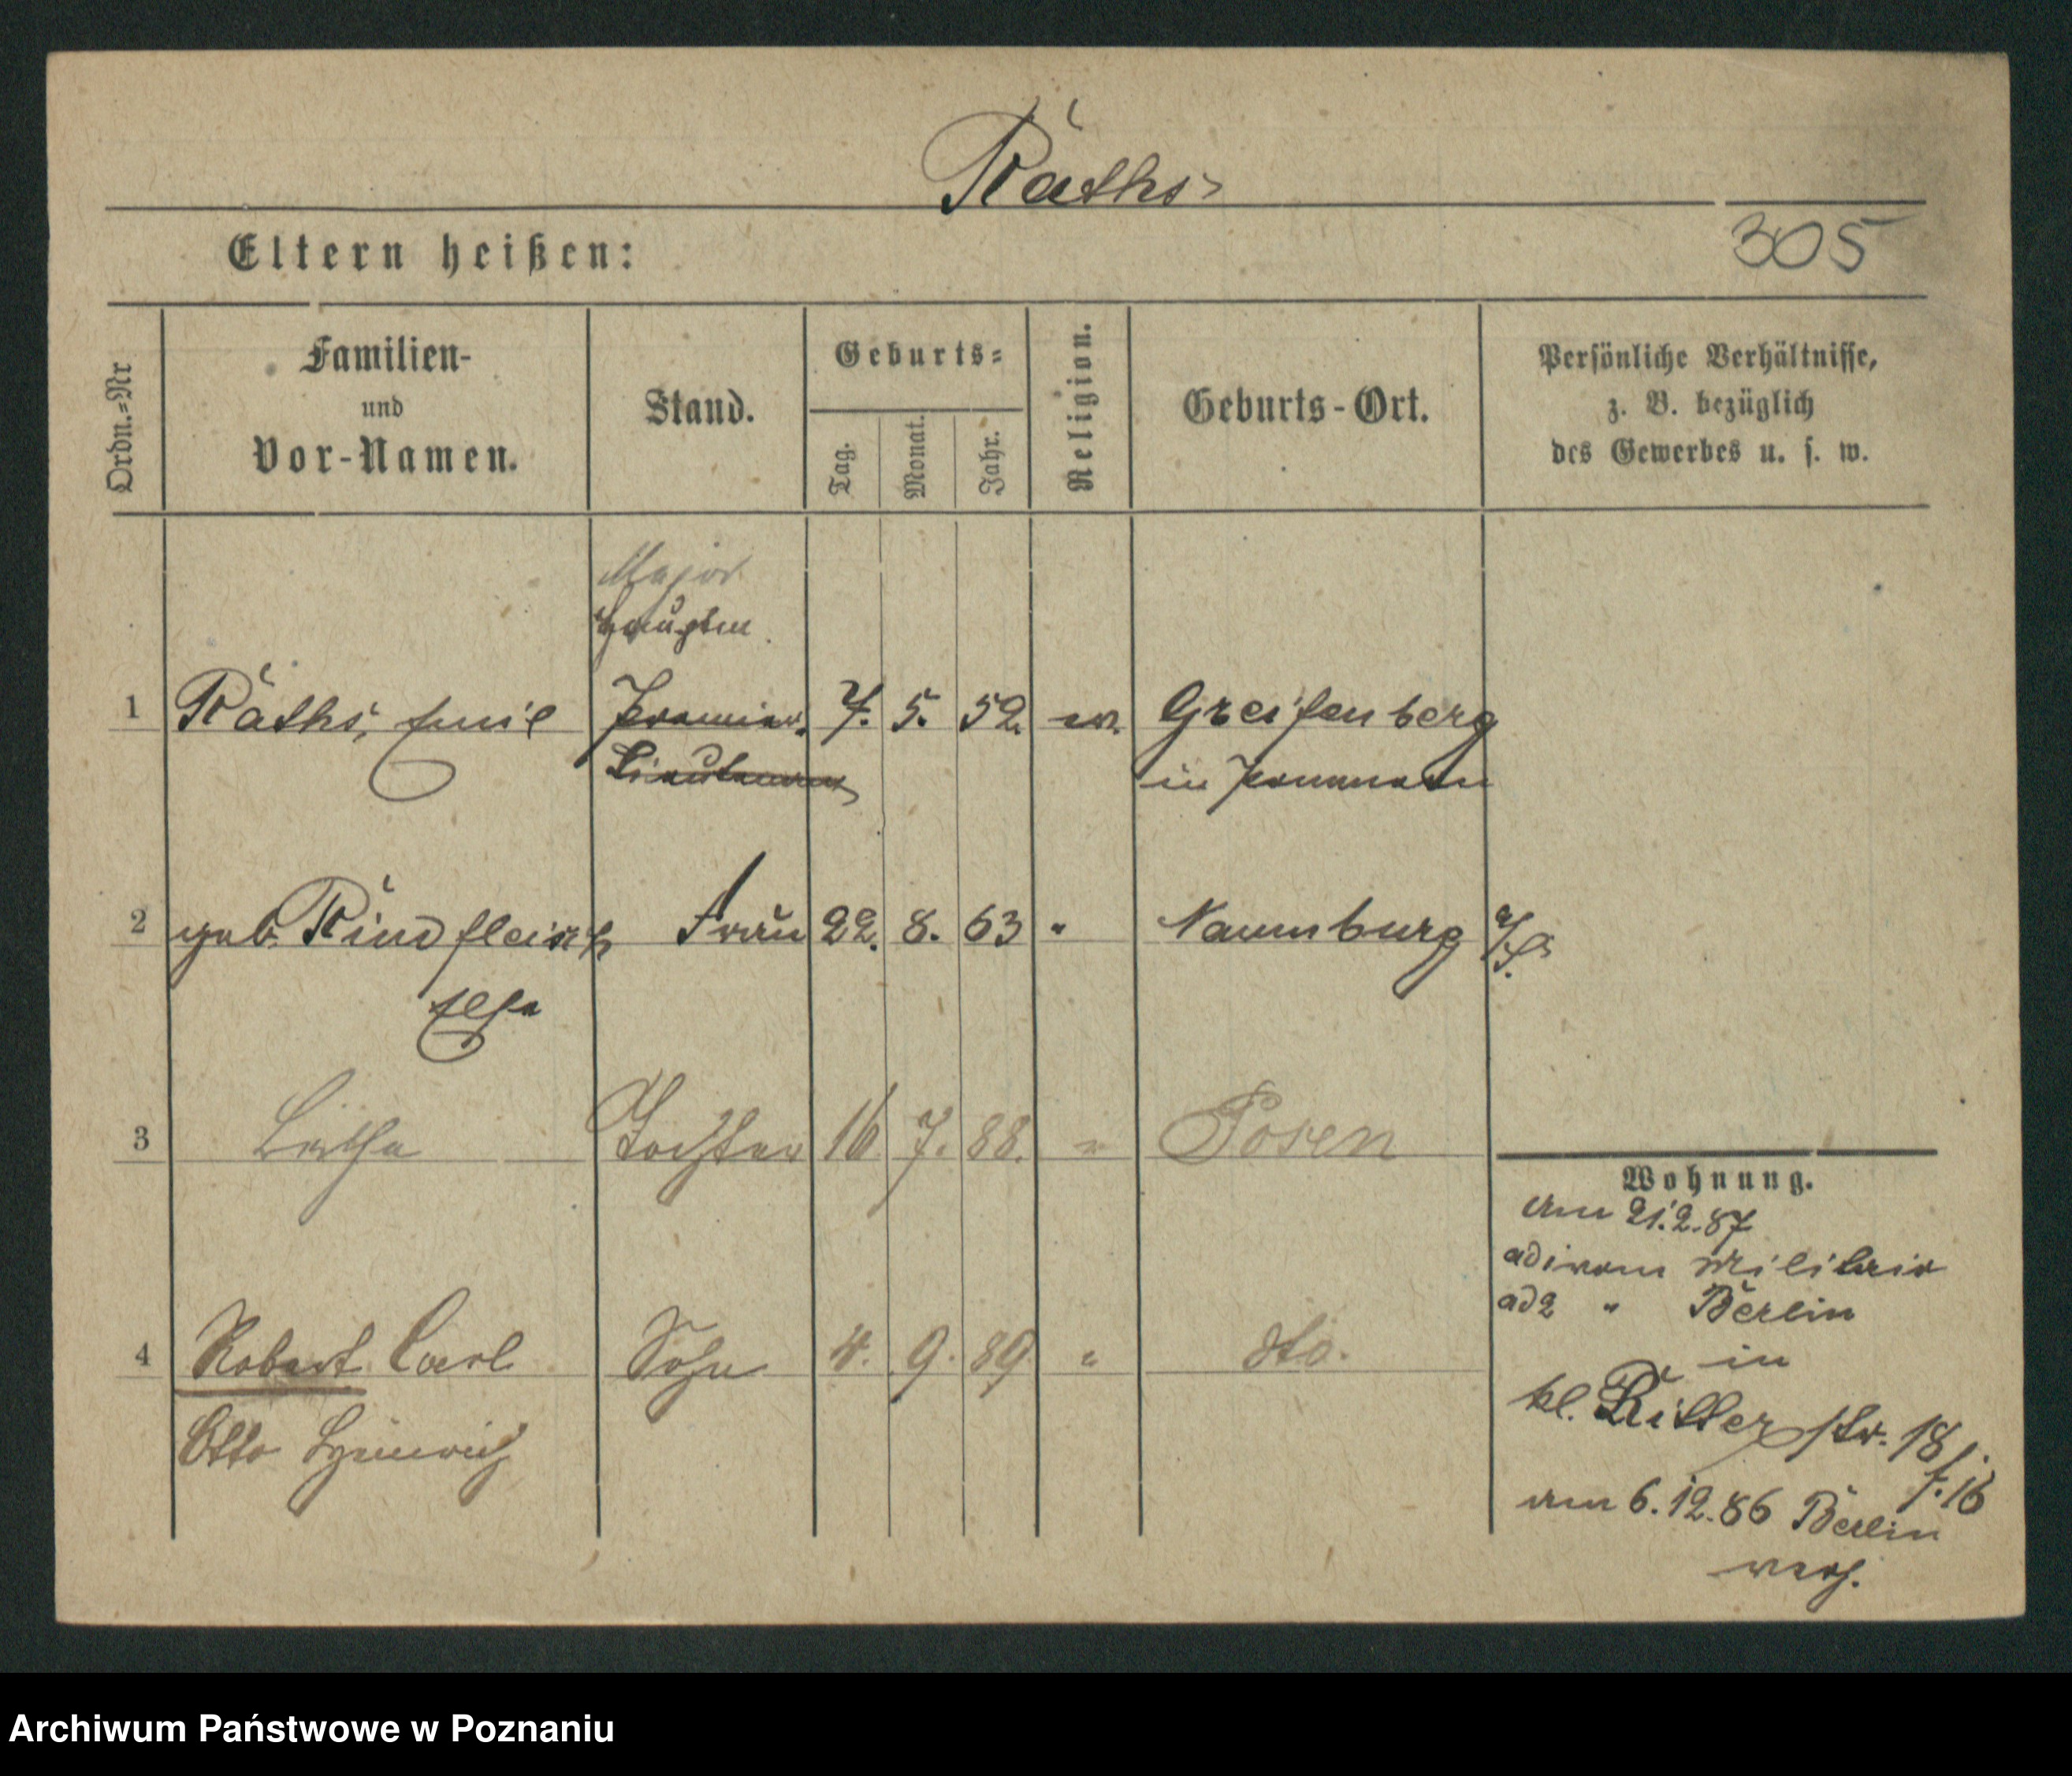 Räths
305
Eltern heißen:
Ordn.=Nr
Familien-
und
Vor-Namen.
Stand.
Geburts=
Tag.
Monat.
Jahr.
Religion.
Geburts-Ort.
Persönliche Verhältnisse,
z. B. bezüglich
des Gewerbes u. s. w.
Major
Hauptm.
1 Räths, Emil Premier- 7. 5. 52. ev. Greifenberg
Lieutenant in Pommern
2 geb. Rindfleisch Frau 22. 8. 63 " Naumburg a/S.
Elsa
3 Tochter 16 7. 88. " Posen
4 Robert Carl Sohn 4. 9. 89 " dto.
Otto Heinrich
Wohnung.
Am 21.2.87
ad 1 vom Militair
ad 2 " Berlin
in
kl. Ritterstr. 18
f. 16
am 6.12.86 Berlin
verh.